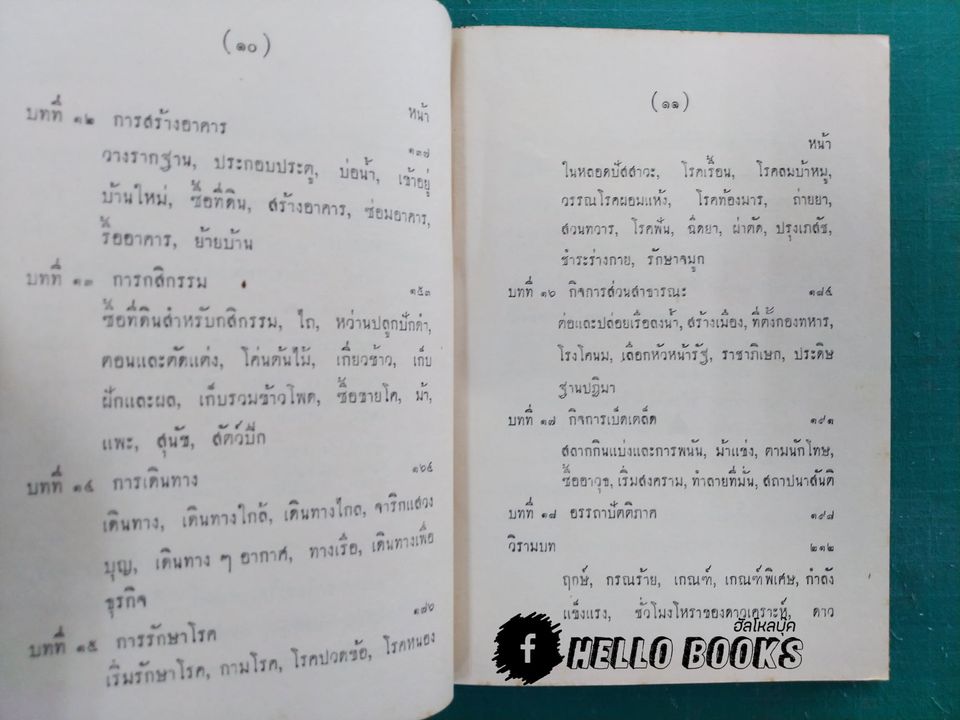 (๑๐)
หน้า
บทที่ ๑๒ การสร้างอาคาร ๑๓๗
วางรากฐาน, ประกอบประตู, บ่อน้ำ, เข้าอยู่
บ้านใหม่, ซื้อที่ดิน, สร้างอาคาร, ซ่อมอาคาร,
รื้ออาคาร, ย้ายบ้าน
บทที่ ๑๓ การกสิกรรม ๑๕๓
ซื้อที่ดินสำหรับกสิกรรม, ไถ, หว่านปลูกปักดำ,
ตอนและตัดแต่ง, โค่นต้นไม้, เกี่ยวข้าว, เก็บ
ฝักและผล, เก็บรวมข้าวโพด, ซื้อขายโค, ม้า,
แพะ, สุนัข, สัตว์ปีก
บทที่ ๑๔ การเดินทาง ๑๖๔
เดินทาง, เดินทางใกล้, เดินทางไกล, จาริกแสวง
บุญ, เดินทาง ๆ อากาศ, ทางเรือ, เดินทางเพื่อ
ธุรกิจ
บทที่ ๑๕ การรักษาโรค ๑๗๖
เริ่มรักษาโรค, กามโรค, โรคปวดข้อ, โรคหนอง
(๑๑)
หน้า
ในหลอดปัสสาวะ, โรคเรื้อน, โรคลมบ้าหมู,
วรรณโรคผอมแห้ง, โรคท้องมาร, ถ่ายยา,
สวนทวาร, โรคฟัน, ฉีดยา, ผ่าตัด, ปรุงเภสัช,
ชำระร่างกาย, รักษาจมูก
บทที่ ๑๖ กิจการส่วนสาธารณะ ๑๘๔
ต่อและปล่อยเรือลงน้ำ, สร้างเมือง, ที่ตั้งกองทหาร,
โรงโคนม, เลือกหัวหน้ารัฐ, ราชาภิเษก, ประดิษ
ฐานปฏิมา
บทที่ ๑๗ กิจการเบ็ดเตล็ด ๑๙๑
สลากกินแบ่งและการพนัน, ม้าแข่ง, ตามนักโทษ,
ซื้ออาวุธ, เริ่มสงคราม, ทำลายที่มั่น, สถาปนาสันติ
บทที่ ๑๘ อรรถาปัตติภาค ๑๙๘
วิรามบท ๒๑๒
ฤกษ์, กรณร้าย, เกณฑ์, เกณฑ์พิเศษ, กำลัง
แข็งแรง, ชั่วโมงโหราของดาวเคราะห์, ดาว
ฮัลโหลบุ๊ค
f HELLO BOOKS